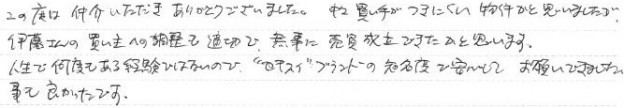 この度は仲介いただきありがとうございました。中々買い手がつきにくい物件かと思いましたが、
伊藤さんの買い主への調整も適切で、無事に売買成立できたかと思います。
人生で何度もある経験ではないので、“セキスイ”ブランドの知名度で安心してお願いできました
事も良かったです。